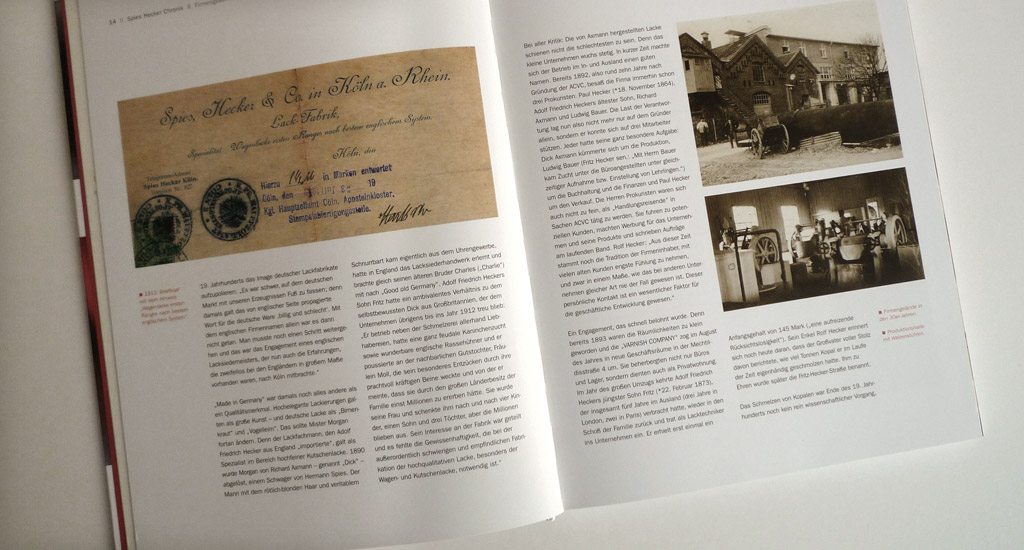 14 || Spies Hecker Chronik
Spies, Hecker & Co. in Köln a. Rhein.
Lack-Fabrik,
Spezialität: Wagenlacke ersten Ranges nach bestem englischem System.
Köln, den
Telegramm-Adresse:
Spies Hecker Köln.
in Marken entwertet
Cöln, den
19
Kgl. Hauptzollamt Cöln, Apostelnkloster.
Stempelabfertigungsstelle.
19. Jahrhunderts das Image deutscher Lackfabrikate
aufzupolieren: „Es war schwer, auf dem deutschen
Markt mit unseren Erzeugnissen Fuß zu fassen; denn
damals galt das von englischer Seite propagierte
Wort für die deutsche Ware ‚billig und schlecht'. Mit
dem englischen Firmennamen allein war es dann
nicht getan. Man musste noch einen Schritt weiterge-
hen und das war das Engagement eines englischen
Lacksiedemeisters, der nun auch die Erfahrungen,
die zweifellos bei den Engländern in großem Maße
vorhanden waren, nach Köln mitbrachte."
„Made in Germany" war damals noch alles andere als
ein Qualitätsmerkmal. Hochelegante Lackierungen gal-
ten als große Kunst – und deutsche Lacke als „Birnen-
kraut" und „Vogelleim". Das sollte Mister Morgan
fortan ändern. Denn der Lackfachmann, den Adolf
Friedrich Hecker aus England „importierte", galt als
Spezialist im Bereich hochfeiner Kutschenlacke. 1890
wurde Morgan von Richard Axmann – genannt „Dick" –
abgelöst, einem Schwager von Hermann Spies. Der
Mann mit dem rötlich-blonden Haar und veritablem
Schnurrbart kam eigentlich aus dem Uhrengewerbe,
hatte in England das Lacksiederhandwerk erlernt und
brachte gleich seinen älteren Bruder Charles („Charlie")
mit nach „Good old Germany". Adolf Friedrich Heckers
Sohn Fritz hatte ein ambivalentes Verhältnis zu dem
selbstbewussten Dick aus Großbritannien, der dem
Unternehmen übrigens bis ins Jahr 1912 treu blieb:
„Er betrieb neben der Schmelzerei allerhand Lieb-
habereien, hatte eine ganz feudale Kaninchenzucht
sowie wunderbare englische Rassehühner und er
poussierte an der nachbarlichen Gutstochter, Fräu-
lein Moll, die sein besonderes Entzücken durch ihre
prachtvoll kräftigen Beine weckte und von der er
meinte, dass sie durch den großen Länderbesitz der
Familie einst Millionen zu ererben hätte. Sie wurde
seine Frau und schenkte ihm nach und nach vier Kin-
der, einen Sohn und drei Töchter, aber die Millionen
blieben aus. Sein Interesse an der Fabrik war geteilt
und es fehlte die Gewissenhaftigkeit, die bei der
außerordentlich schwierigen und empfindlichen Fabri-
kation der hochqualitativen Lacke, besonders der
Wagen- und Kutschenlacke, notwendig ist."
Bei aller Kritik: Die von Axmann hergestellten Lacke
schienen nicht die schlechtesten zu sein. Denn das
kleine Unternehmen wuchs stetig. In kurzer Zeit machte
sich der Betrieb im In- und Ausland einen guten
Namen. Bereits 1892, also rund zehn Jahre nach
Gründung der ACVC, besaß die Firma immerhin schon
drei Prokuristen: Paul Hecker (*18. November 1864),
Adolf Friedrich Heckers ältester Sohn, Richard
Axmann und Ludwig Bauer. Die Last der Verantwor-
tung lag nun also nicht mehr nur auf dem Gründer
allein, sondern er konnte sich auf drei Mitarbeiter
stützen. Jeder hatte seine ganz besondere Aufgabe:
Dick Axmann kümmerte sich um die Produktion,
Ludwig Bauer (Fritz Hecker sen.: „Mit Herrn Bauer
kam Zucht unter die Büroangestellten unter gleich-
zeitiger Aufnahme bzw. Einstellung von Lehrlingen.")
um die Buchhaltung und die Finanzen und Paul Hecker
um den Verkauf. Die Herren Prokuristen waren sich
auch nicht zu fein, als „Handlungsreisende" in
Sachen ACVC tätig zu werden. Sie fuhren zu poten-
ziellen Kunden, machten Werbung für das Unterneh-
men und seine Produkte und schrieben Aufträge
am laufenden Band. Rolf Hecker: „Aus dieser Zeit
stammt noch die Tradition der Firmeninhaber, mit
vielen alten Kunden engste Fühlung zu nehmen,
und zwar in einem Maße, wie das bei anderen Unter-
nehmen gleicher Art nie der Fall gewesen ist. Dieser
persönliche Kontakt ist ein wesentlicher Faktor für
die geschäftliche Entwicklung gewesen."
Ein Engagement, das schnell belohnt wurde. Denn
bereits 1893 waren die Räumlichkeiten zu klein
geworden und die „VARNISH COMPANY" zog im August
des Jahres in neue Geschäftsräume in der Mechtil-
disstraße 4 um. Sie beherbergten nicht nur Büros
und Lager, sondern dienten auch als Privatwohnung.
Im Jahr des großen Umzugs kehrte Adolf Friedrich
Heckers jüngster Sohn Fritz (*22. Februar 1873),
der insgesamt fünf Jahre im Ausland (drei Jahre in
London, zwei in Paris) verbracht hatte, wieder in den
Schoß der Familie zurück und trat als Lacktechniker
ins Unternehmen ein. Er erhielt erst einmal ein
Anfangsgehalt von 145 Mark („eine aufreizende
Rücksichtslosigkeit"). Sein Enkel Rolf Hecker erinnert
sich noch heute daran, dass der Großvater voller Stolz
davon berichtete, wie viel Tonnen Kopal er im Laufe
der Zeit eigenhändig geschmolzen hatte. Ihm zu
Ehren wurde später die Fritz-Hecker-Straße benannt.
Das Schmelzen von Kopalen war Ende des 19. Jahr-
hunderts noch kein rein wissenschaftlicher Vorgang,
Firmengebäude in
den 20er Jahren.